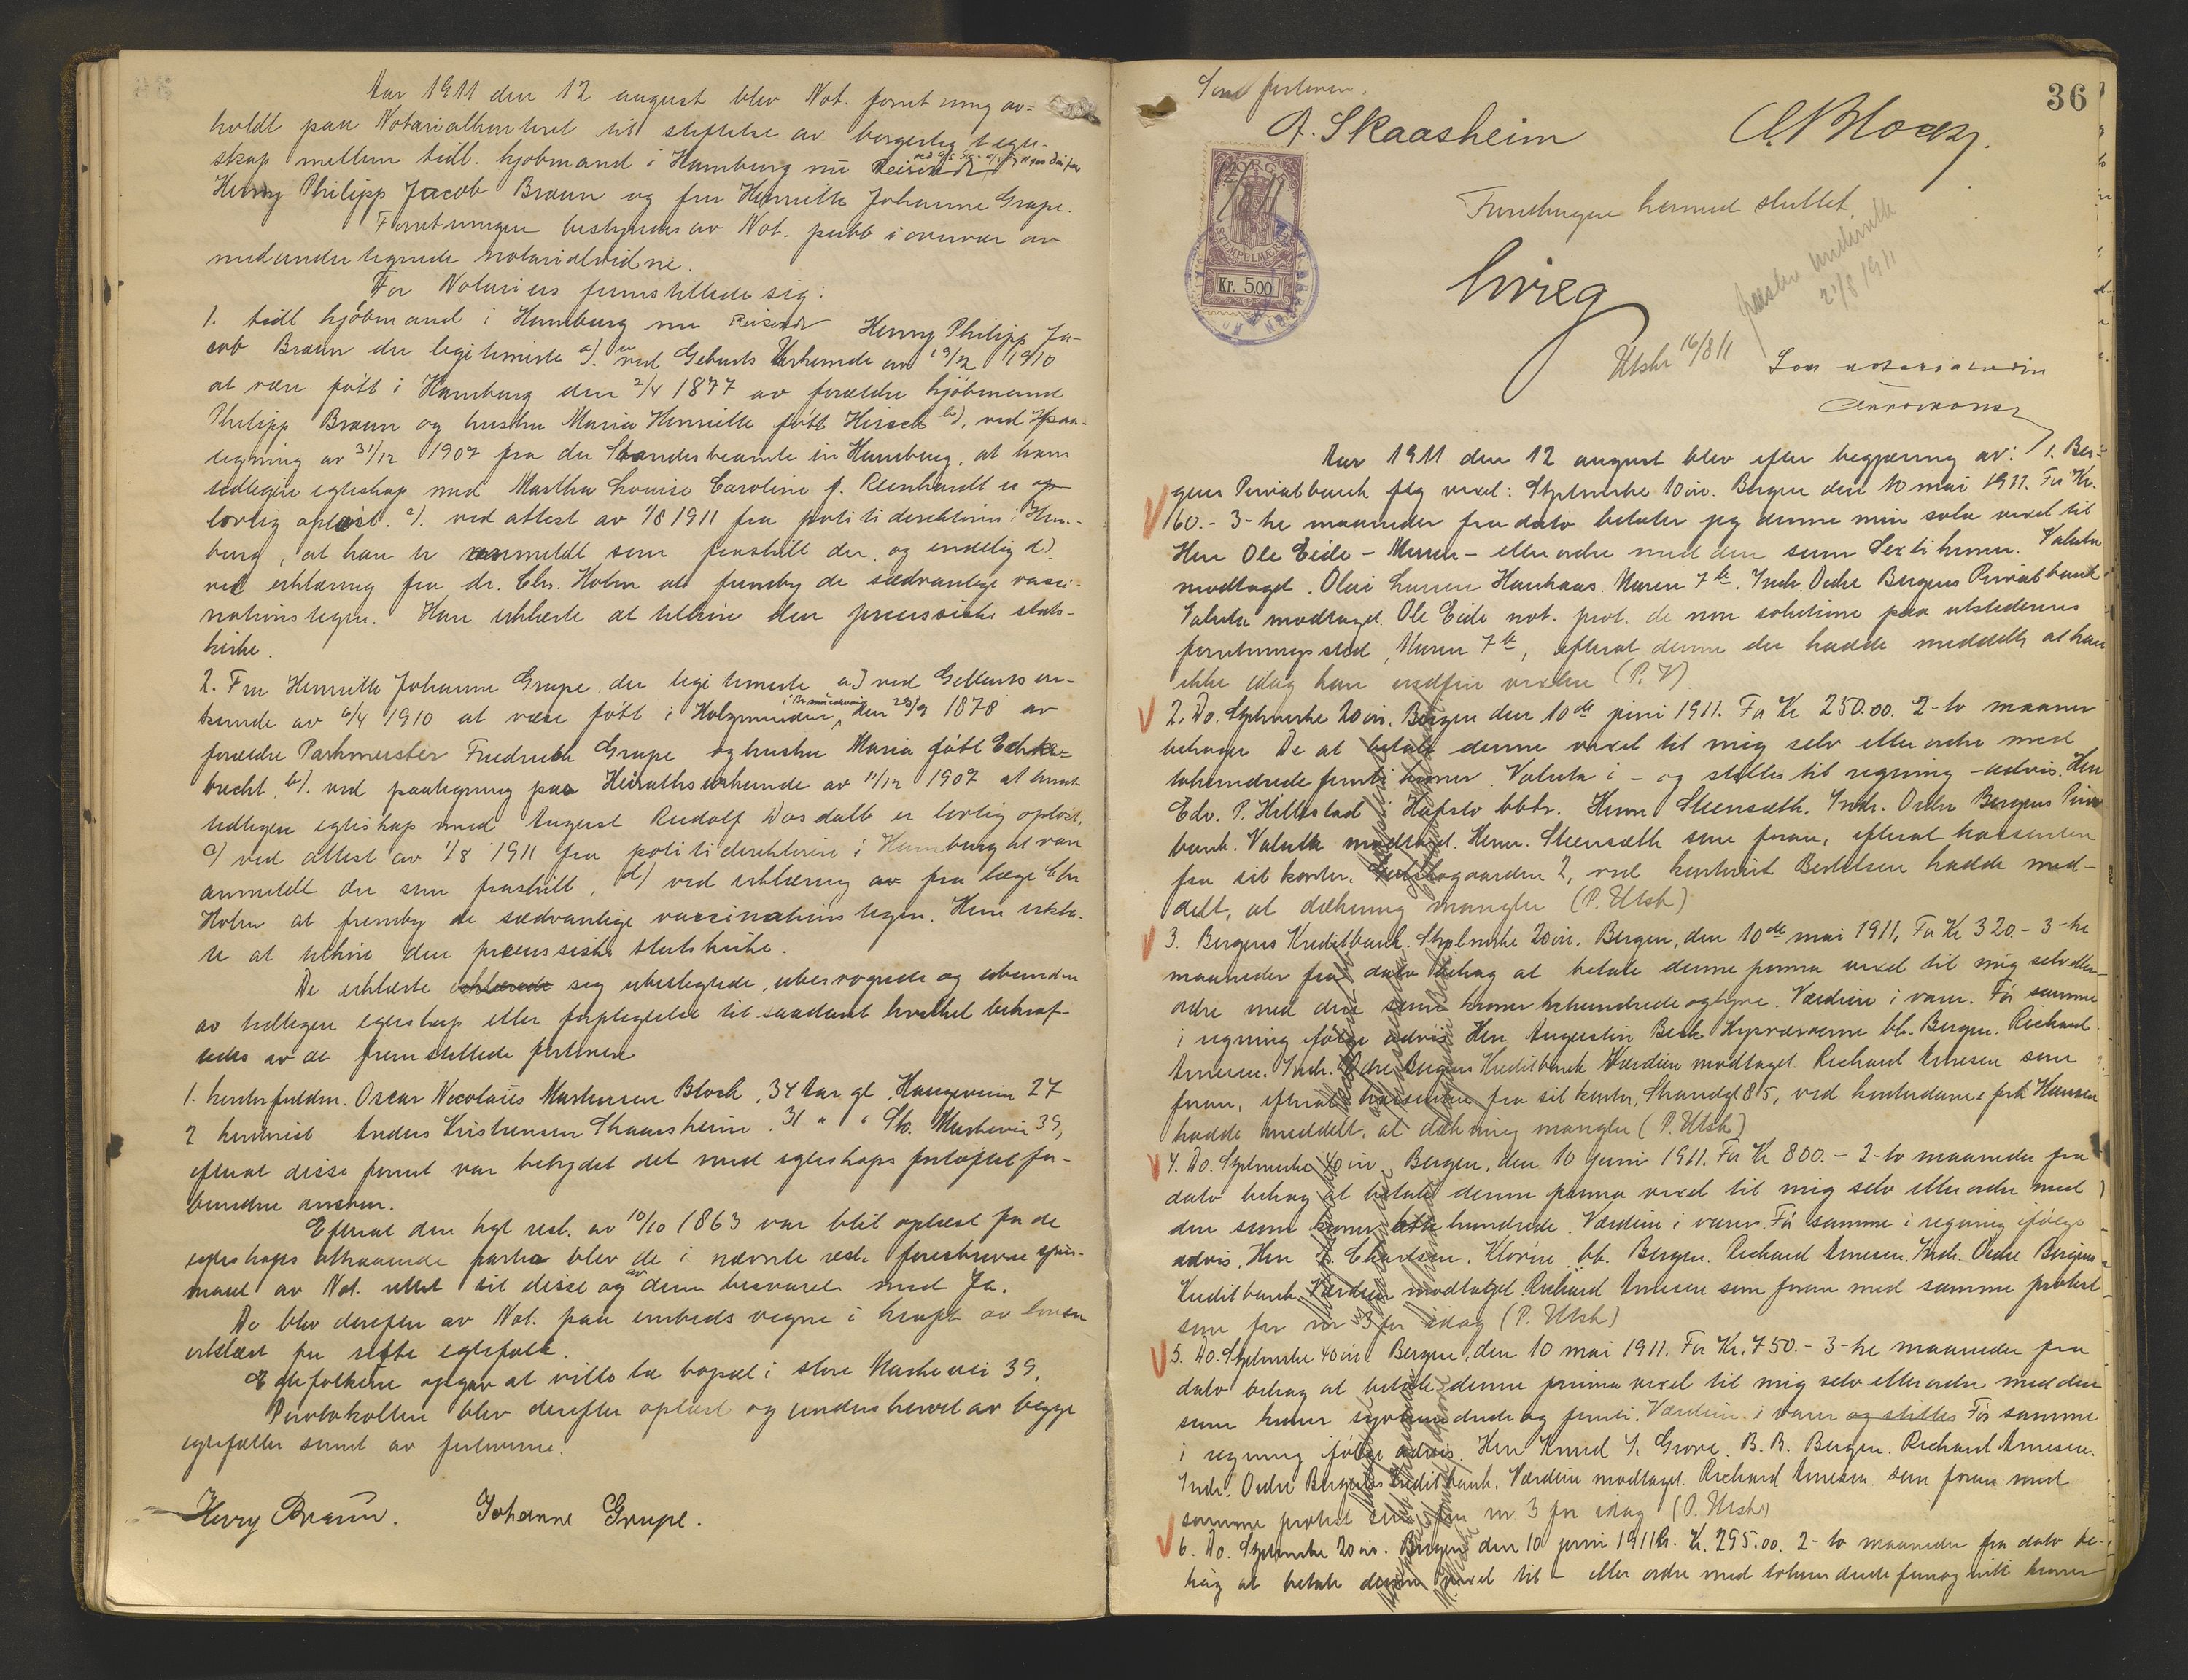 Aar 1911 den 12 august blev Not. forretning av=
holdt paa Notarialkontoret til stiftelse av borgerlig egte-
skap mellem tidl. kjøbmand i Hamburg nu Reisende
Henry Philipp Jacob Braun og fru Henriette Johanne Grupe.
Forretningen bestyredes av Not. publ i overvær av
medundertegnede notarialvidne.
For Notarius fremstillede sig:
1. tidl kjøbmand i Hamburg nu Reisende Henry Philipp Ja-
cob Braun der legitimerte a). ved Geburts Urkunde av 19/12 1910
at være født i Hamburg den 2/4 1877 av forældre kjøbmand
Philipp Braun og hustru Maria Henriette født Hirsch b), ved paa-
tegning av 31/12 1907 fra der Standesbeamte in Hamburg, at hans
tidligere egteskap med Martha Louise Caroline f. Reinhardt er
lovlig opløst. c). ved attest av 1/8 1911 fra politidirektøren i Ham-
burg, at han er anmeldt som fraskilt der, og endelig d).
ved erklæring fra dr. Chr. Holm at fremby de sædvanlige vacci-
nationstegn. Han erklærte at tilhøre den preussiske stats-
kirke.
2. Fru Henriette Johanne Grupe, der legitimerte a) ved Geburtsur-
kunde av 6/4 1910 at være født i Holzminden, i Braunschweig den 29/9 1878 av
forældre Parkmeister Friedrich Grupe og hustru Maria født
brecht, b). ved paategning paa Heirathsurkunde av 11/12 1907 at hendes
tidligere egteskap med August Rudolf Dosdall er lovlig opløst,
c) ved attest av 1/8 1911 fra politidirektøren i Hamburg at være
anmeldt der som fraskilt, d) ved erklæring av fra læge Chr
Holm at fremby de sædvanlige vaccinationstegn. Hun erklær-
te at tilhøre den preussiske statskirke.
De erklærte erklærede sig ubeslegtede, ubesvogrede og ubundne
av tidligere egteskap eller forpligtelse til saadant hvilket bekræf-
tedes av de fremstillede forlovere
1. kontorfuldm. Oscar Nicolaus Martinsen Bloch, 34 aar gl, Haugeveien 27
2 kontorist Anders Kristensen Skaasheim, 31 " " St. Markevei 39,
efterat disse forut var betydet det med egteskaps forløftet for-
bundne ansvar.
Efterat den kgl resl. av 10/10 1863 var blit oplæst for de
egteskaps attraaende parter blev de i nævnte resl. foreskrevne spørs-
maal av Not. rettet til disse og av dem besvaret med Ja.
De blev derefter av Not. paa embeds vegne i kraft av loven
erklært for rette egtefolk.
Egtefolkene opgav at ville ta bopæl i store Markevei 39.
Protokollen blev derefter oplæst og underskrevet av begge
egtefæller samt av forloverne.
Henry Braun. Johanne Grupe.
36
Som forlovere.
A. Skaasheim O. N. M. Bloch.
NORGE
12/8 11
STEMPELMÆRKE
Kr. 5.00
Forretningen hermed sluttet.
21/8 1911
Utskr 16/8 11
Som notarialvidne
Aar 1911 den 12 august blev efter begjæring av: 1. Ber-
gens Privatbank flg vexel: Stplmerke 10 øre. Bergen den 10 mai 1911. For Kr.
60.- 3-tre maaneder fra dato betaler jeg denne min sola vexel til
Herr Ole Eide - Muren - eller ordre med den sum Sexti kroner. Valuta
modtaget. Oluf Larsen Haukaas. Muren 7de. Indr. Ordre Bergens Privatbank
Valuta modtaget. Ole Eide not. prot. de non solutione paa utstederens
forretningssted, Muren 7de, efterat denne der hadde meddelt, at han
ikke idag kan indfri vexlen (P. V)
2. Do. Stplmerke 20 øre. Bergen den 10de juni 1911. For Kr 250.00. 2-to maaner
behager De at betale denne vexel til mig selv eller ordre med
tohundrede femti kroner. Valuta i - og stilles til regning - advis. Herr
Edv. P. Hillestad i Hafslo bbtr. Herm Steensæth. Indr. Ordre Bergens Privat
bank. Valuta modtaget. Herm. Steensæth som foran, efterat trassenten
fra sit kontor, 2, ved kontorist Bertelsen hadde med-
delt, at dækning mangler (P. Utsk)
3. Bergens Kreditbank. Stplmerke 20 øre. Bergen, den 10de mai 1911, For Kr 320.- 3-tre
maaneder fra dato behag at betale denne prima vexel til mig selv eller
ordre med den sum kroner trehundrede og tyve. Værdien i varer. Før samme
i regning ifølge advis Herr Augustin Beck bb. Bergen. Richard
Arnesen. Indr. Ordre Bergens Kreditbank Værdien modtaget. Richard Arnesen som
foran, efterat trassenten fra sit kontor, Strandgt 85, ved kontordame frk Hansen
hadde meddelt, at dækning mangler (P. Utsk)
4. Do. Stplmerke 40 øre. Bergen, den 10 juni 1911. For Kr 800.- 2-to maaneder fra
dato behag at betale denne prima vexel til mig selv eller ordre med
den sum kroner otte hundrede. Værdien i varer. Før samme i regning ifølge
advis. Herr bb. Bergen. Richard Arnesen. Indr. Ordre Bergens
Kreditbank Værdien modtatget. Richard Arnesen som foran med samme protest
som for nr 3 for idag (P. Utsk)
5. Do. Stplmerke 40 øre. Bergen, den 10 mai 1911. For Kr. 750.- 3-tre maaneder fra
dato behag at betale denne prima vexel til mig selv eller ordre med den
sum kroner syvhundrede og femti. Værdien i varer og stilles Før samme
i regning ifølge advis. Herr Knud Grove. B. B. Bergen. Richard Arnesen.
Indr. Ordre Bergens Kreditbank. Værdien modtaget. Richard Arnesen. som foran med
samme protest som for nr 3 for idag (P. Utsk)
6. Do. Stplmerke 20 øre. Bergen den 10 juni 1911 Kr. 295.00. 2-to maaneder fra dato be-
hag at betale denne vexel til - eller ordre med tohundrede femognitti kroner